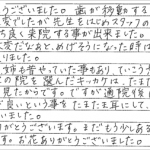 うございました。歯が移動する
変でしたが先生をはじめスタッフの
ち良く来院する事が出来ました。
大変だなぁと、めげそうになった時は
りました。
姉も昔やっていた事もあり、ていこうが
の院を選んだキッカケは、たま
見たからです。ですが通院後に
が良いという事をたまたま耳にして、
いました。
がとうございます。まだもう少しある
す。お花ありがとうございました。